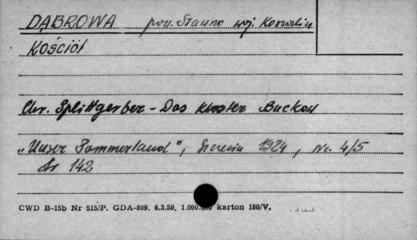 DĄBROWA pow. Sławno woj. Koszalin
KOŚCIÓŁ
Chr. Splittgerber - Das Kloster Buckow
"Unser Pommerland", Szczecin 1924, Nr. 4/5
str 142
CWD B-15b Nr 515/P. GDA-809. 6.3.59, 1.000.000 karton 180/V.